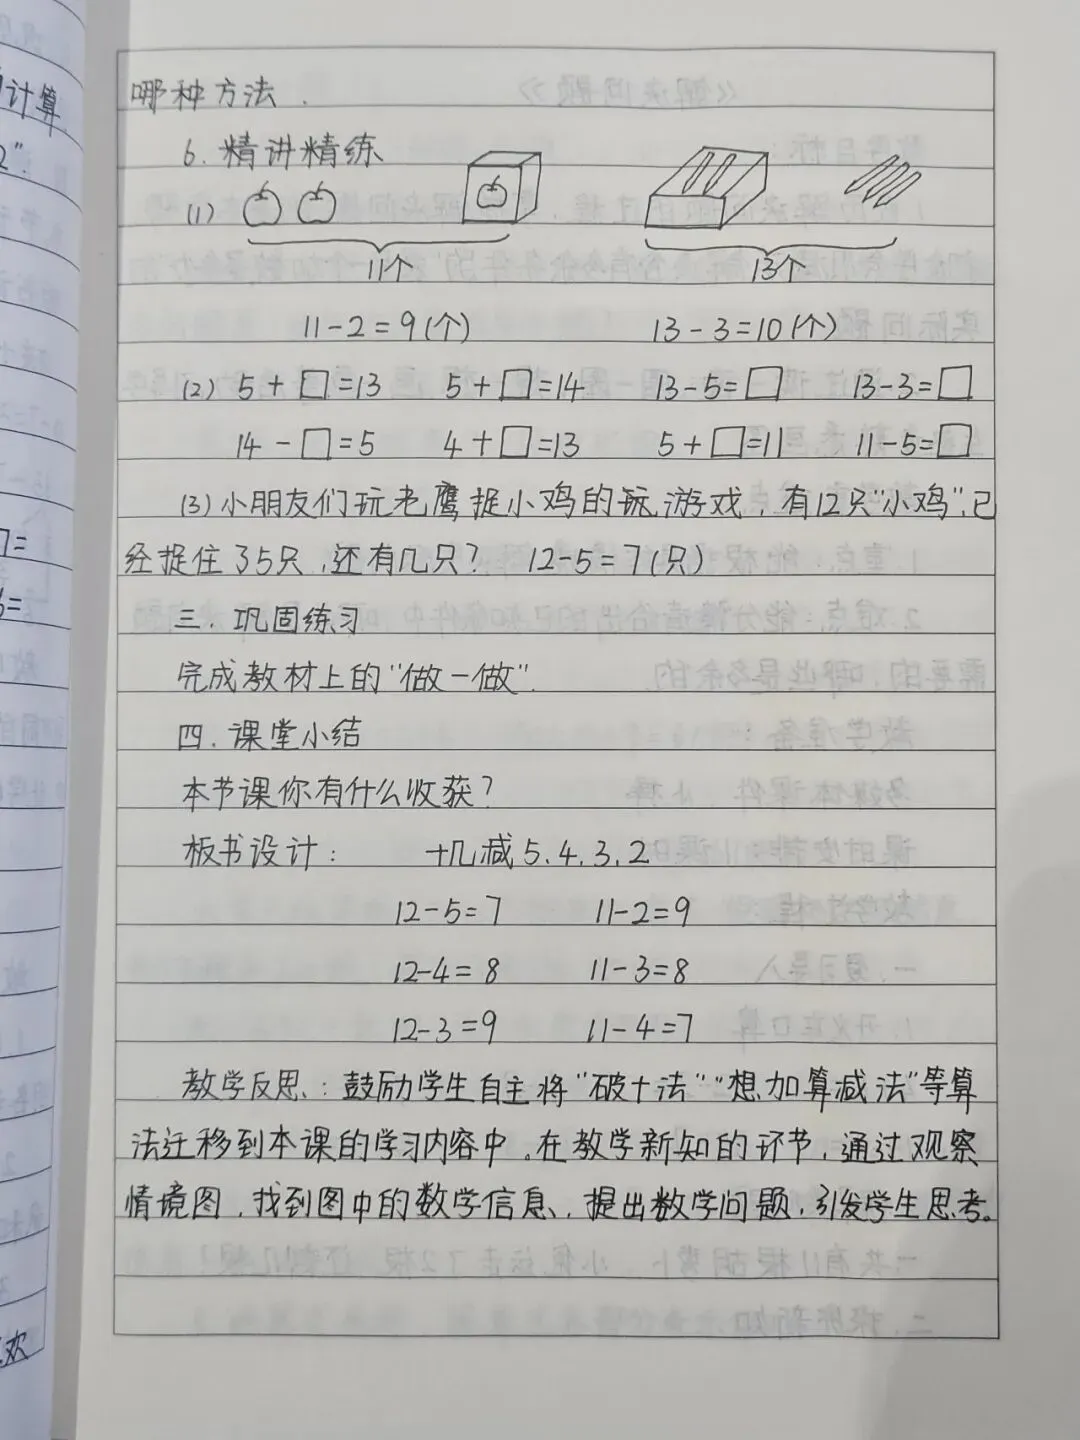 哪种方法.
6.精讲精练
(1)
11个 13个
11-2=9(个) 13-3=10(个)
(2) 5+□=13 5+□=14 13-5=□ 13-3=□
14-□=5 4+□=13 5+□=11 11-5=□
(3)小朋友们玩老鹰捉小鸡的玩游戏,有12只"小鸡",已
经捉住了5只,还有几只? 12-5=7(只)
三.巩固练习
完成教材上的"做一做".
四.课堂小结
本节课你有什么收获?
板书设计: 十几减5.4.3.2
12-5=7 11-2=9
12-4=8 11-3=8
12-3=9 11-4=7
教学反思:鼓励学生自主将"破十法""想加算减法"等算
法迁移到本课的学习内容中。在教学新知的环节,通过观察
情境图,找到图中的数学信息,提出数学问题,引发学生思考。
计算
2".
7=
欢